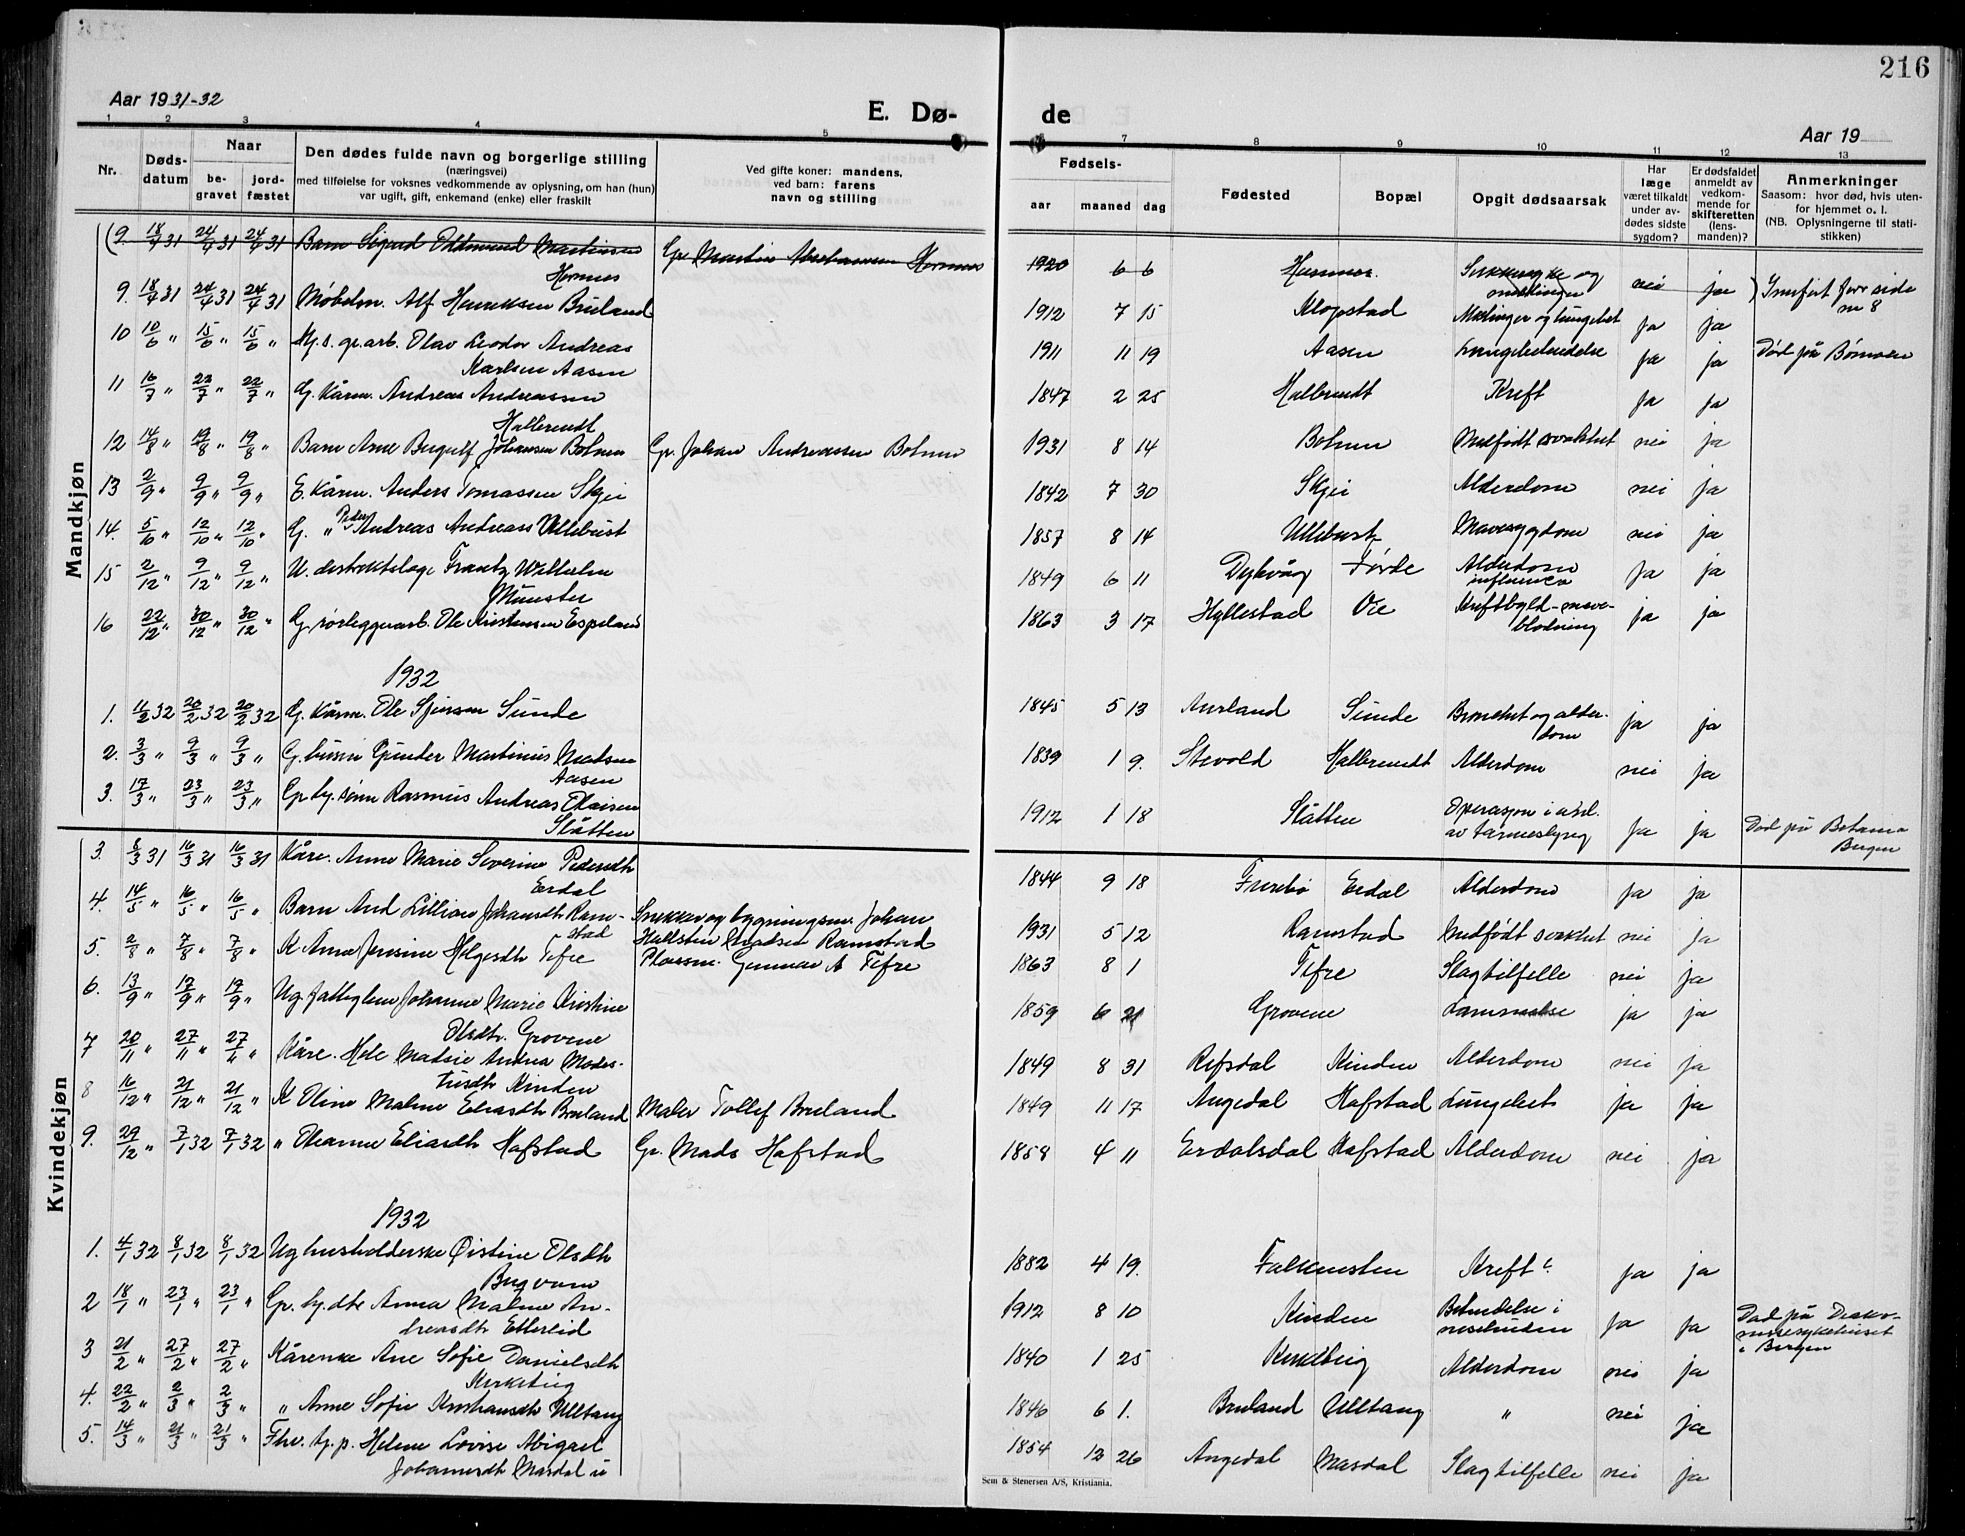 216
Aar 1931-32
E. Dø-
de
Aar 19
1 2 3 4 5 7 8 9 10 11 12 13
Nr.
Døds-
datum
Naar
be-
gravet
jord-
fæstet
Den dødes fulde navn og borgerlige stilling
(næringsvei)
med tilføielse for voksnes vedkommende av oplysning, om han (hun)
var ugift, gift, enkemand (enke) eller fraskilt
Ved gifte koner: mandens,
ved barn: farens
navn og stilling
Fødsels-
aar maaned dag
Fødested
Bopæl
Opgit dødsaarsak
Har
læge
været tilkaldt
under av-
dødes sidste
sygdom?
Er dødsfaldet
anmeldt av
vedkom-
mende for
skifteretten
(lens-
manden)?
Anmerkninger
Saasom: hvor død, hvis uten-
for hjemmet o. l.
(NB. Oplysningerne til stati-
stikken)
Mandkjøn
(9. 18/4 31 24/4 31 24/4 31 Barn Sigurd Oddmund Martinsen Gr. Martin Abrahamsen Hornnes 1920 6 6 og nei ja) Innført forr side
Hornnes nr 8
9. 18/4 31 24/4 31 24/4 31 Møbelsn. Alf Henriksen Bruland 1912 7 15 Klopstad Meslinger og lungebet ja ja
10 10/6 " 15/6 " 15/6 " Olav Leodor Andreas 1911 11 19 Aasen Lungebetendelse ja ja Død på Bømoen
Karlsen Aasen
11 16/7 " 22/7 " 22/7 " G. Kårm. Andreas Andreassen 1847 2 25 Halbrendt Kreft ja ja
Halbrendt
12 14/8 " 19/8 " 19/8 " Barn Arne Bergulf Johansen Bolnen Gr. Johan Andreassen Bolnen 1931 8 14 Bolnen Medfødt svakhet nei ja
13 2/9 " 9/9 " 9/9 " E. Kårm. Anders Tomassen Skjei 1842 7 30 Skjei Alderdom nei ja
14. 5/10 " 12/10 " 12/10 " G. " Peder Andreas Andreass Ullebust 1857 8 14 Ullebust Mavesygdom nei ja
15 2/12 " 9/12 " 9/12 " U. distriktslæge Frantz Wilhelm 1849 6 11 Dypvåg Førde Alderdom ja ja
Münster influensa
16 22/12 " 30/12 " 30/12 " G. rørleggerarb. Ole Kristensen Espeland 1863 3 17 Hyllestad Vie Kreftbyld - mave- ja ja
blødning
1932
1. 11/2 32 20/2 32 20/2 32 G. Kårm. Ole Sjursen Sunde 1845 5 13 Aurland Sunde Bronchit og alder- ja ja
dom
2. 3/3 " 9/3 " 9/3 " G. Gunder Martinus Madsen 1839 1 9. Stavold Halbrendt Alderdom nei ja
Aasen
3. 17/3 " 23/3 " 23/3 " Gr. by. sønn Rasmus Andreas Olaisen 1912 1 18 Slåtten Operasjon i anl. ja ja Død på Betania
Slåtten av tarmeslyng Bergen
Kvindekjøn
3. 8/3 31 16/3 31 16/3 31 Kåre. Anne Marie Severine Pedersdtr 1844 9 18 Furebø Erdal Alderdom ja ja
Erdal
4. 14/5 " 16/5 " 16/5 " Barn And Lillian Johansdtr Ram- Snekker og bygningsm. Johan 1931 5 12 Ramstad Medfødt svakhet nei ja
stad Hallsten Madsen Ramstad
5. 2/8 " 7/8 " 7/8 " K Anne Jensine Helgesdtr Tefre Plassm. Gunnar A Tefre 1863 8 1 Tefre Slagtilfelle nei ja
6. 13/9 " 17/9 " 17/9 " Ug. fattiglem Johanne Marie Kristine 1859 6 21 Grovene Lammelse ja ja
Olsdtr. Grovene
7 20/11 " 27/11 " 27/11 " Kåre. Madsie Andrea Modes- 1849 8 31 Refsdal Kinden Alderdom nei ja
tusdtr Kinden
8 16/12 " 21/12 " 21/12 " K Oline Malene Eliasdtr Bruland Maler Tollef Bruland 1849 11 17 Angedal Hafstad Lungebet ja ja
9. 29/12 " 7/1 32 7/1 32 " Oleanna Eliasdtr Hafstad Gr. Mads Hafstad 1858 4 11 Erdalsdal Hafstad Alderdom nei ja
1932
1. 4/1 32 8/1 32 8/1 32 Ug husholderske Kristine Olsdtr 1882 4 19. Falkensten Kreft ja ja
2 18/1 " 23/1 " 23/1 " Gr. by. dtr Anna Malene An- 1912 8 10 Kinden Betendelse i ja ja Død på Diako-
dreasdtr Etterlid neshinden nissesykehuset
i Bergen
3 21/2 " 27/2 " 27/2 " Kårenke Ane Sofie Danielsdtr 1840 1 25 Alderdom nei ja
4. 22/2 " 2/3 " 2/3 " " Anne Sofie Kristiansdtr Ulltang 1846 6 1. Bruland Ulltang " nei ja
5. 14/3 " 21/3 " 21/3 " Fhv. tj.p. Helene Lovise Abigael 1854 12 26 Angedal Masdal Slagtilfelle nei ja
Johannesdtr Masdal u
Sem & Stenersen A/S, Kristiania.